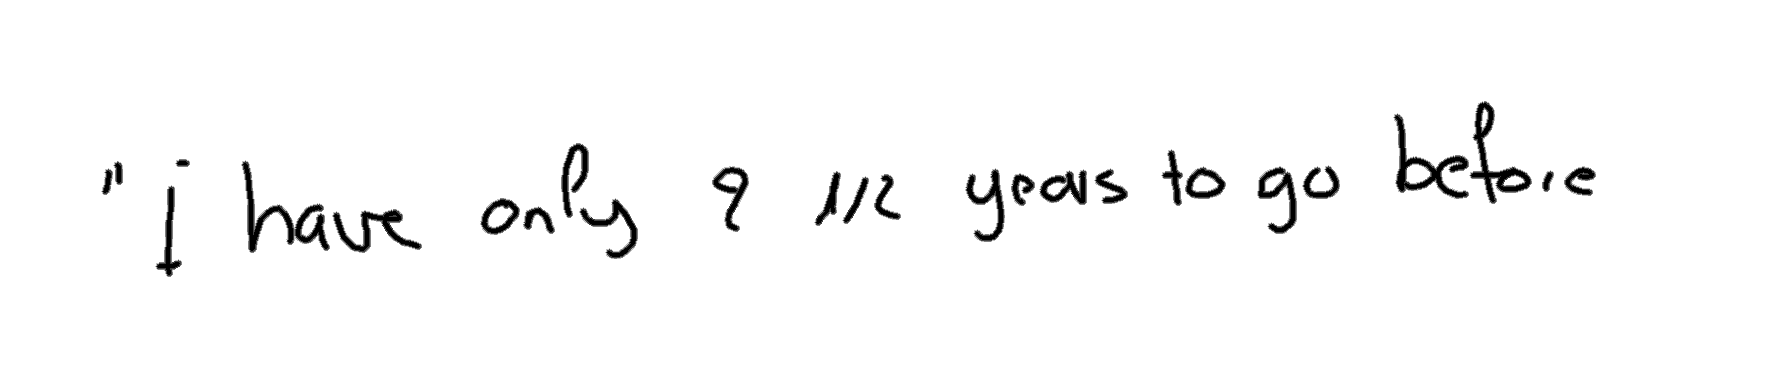 "I have only 9 1/2 years to go before